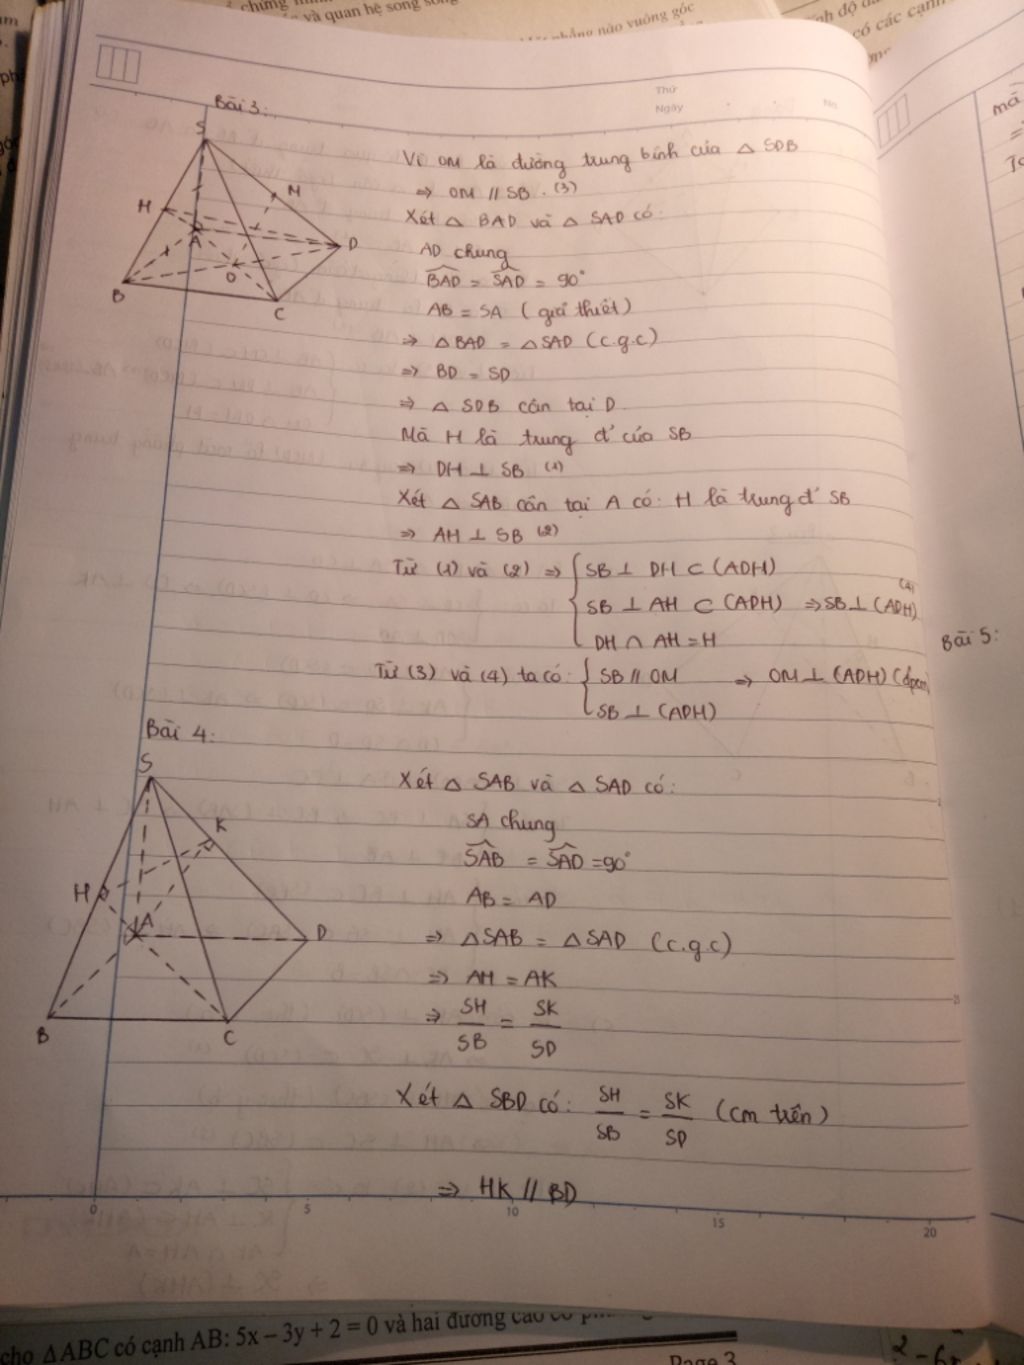 chứng min
và quan hệ song song
phẳng nào vuông góc
có các cạnh
Thứ
Ngày
No
Bài 3:
S
M
H
A
D
O
B
C
Vì OM là đường trung bình của △ SDB
⇒ OM // SB . (3)
Xét △ BAD và △ SAD có:
AD chung
BAD = SAD = 90°
AB = SA ( giả thiết)
⇒ △ BAD = △ SAD (c.g.c)
⇒ BD = SD
⇒ △ SDB cân tại D
Mà H là trung đ' của SB
⇒ DH ⊥ SB (1)
Xét △ SAB cân tại A có: H là trung đ' SB
⇒ AH ⊥ SB (2)
Từ (1) và (2) ⇒ { SB ⊥ DH ⊂ (ADH)
SB ⊥ AH ⊂ (ADH) ⇒ SB ⊥ (ADH) (4)
DH ∩ AH = H
Từ (3) và (4) ta có: { SB // OM ⇒ OM ⊥ (ADH) (đpcm)
SB ⊥ (ADH)
Bài 5:
Bài 4:
S
K
H
A
D
B
C
Xét △ SAB và △ SAD có:
SA chung
SAB = SAD = 90°
AB = AD
⇒ △SAB = △SAD (c.g.c)
⇒ AH = AK
⇒ SH/SB = SK/SD
Xét △ SBD có: SH/SB = SK/SD (cm trên)
⇒ HK // BD
0 5 10 15 20
cho ΔABC có cạnh AB: 5x – 3y + 2 = 0 và hai đường cao có
Page 3